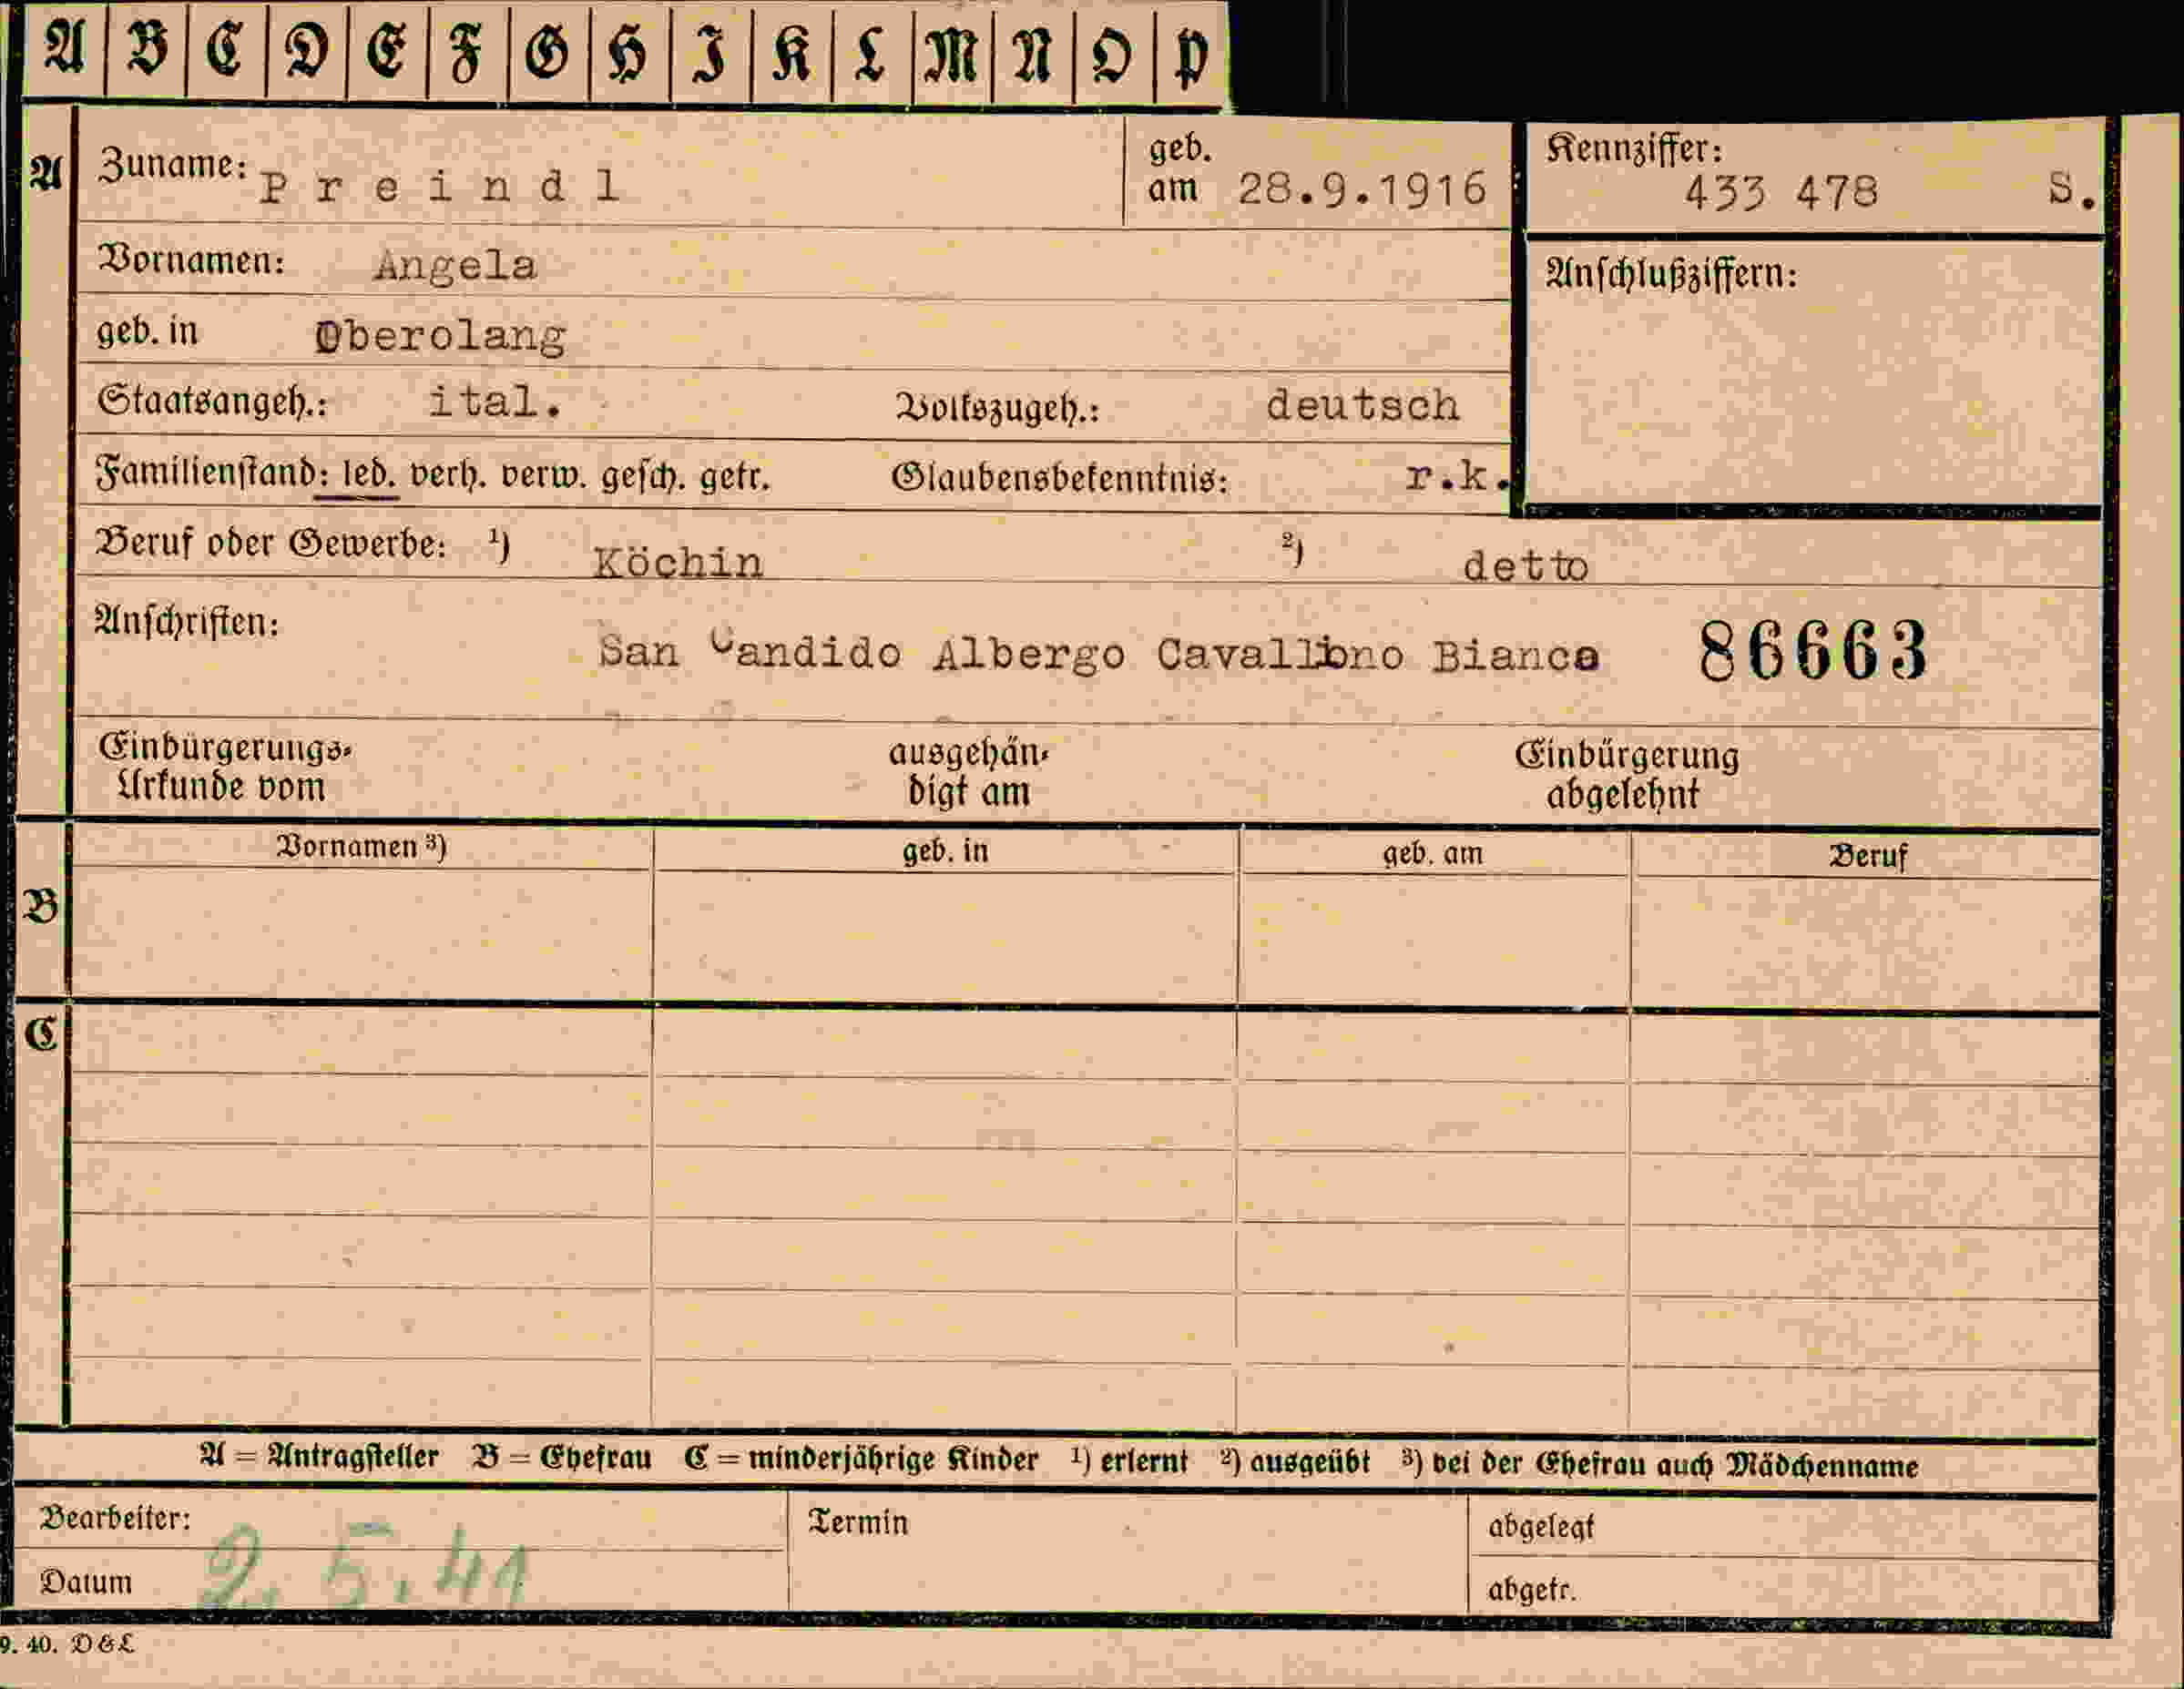 A B C D E F G H I K L M N O P
A Zuname: Preindl geb. am 28.9.1916 Kennziffer: 433 478 S.
Vornamen: Angela Anschlußziffern:
geb. in Oberolang
Staatsangeh.: ital. Volkszugeh.: deutsch
Familienstand: led. verh. verw. gesch. getr. Glaubensbekenntnis: r.k.
Beruf oder Gewerbe: ¹) Köchin ²) detto
Anschriften: San Candido Albergo Cavallino Bianco 86663
Einbürgerungs- ausgehän- Einbürgerung
Urkunde vom digt am abgelehnt
Vornamen ³) geb. in geb. am Beruf
B
C
A = Antragsteller B = Ehefrau C = minderjährige Kinder ¹) erlernt ²) ausgeübt ³) bei der Ehefrau auch Mädchenname
Bearbeiter: Termin abgelegt
Datum 2.5.41 abgetr.
9. 40. D&L